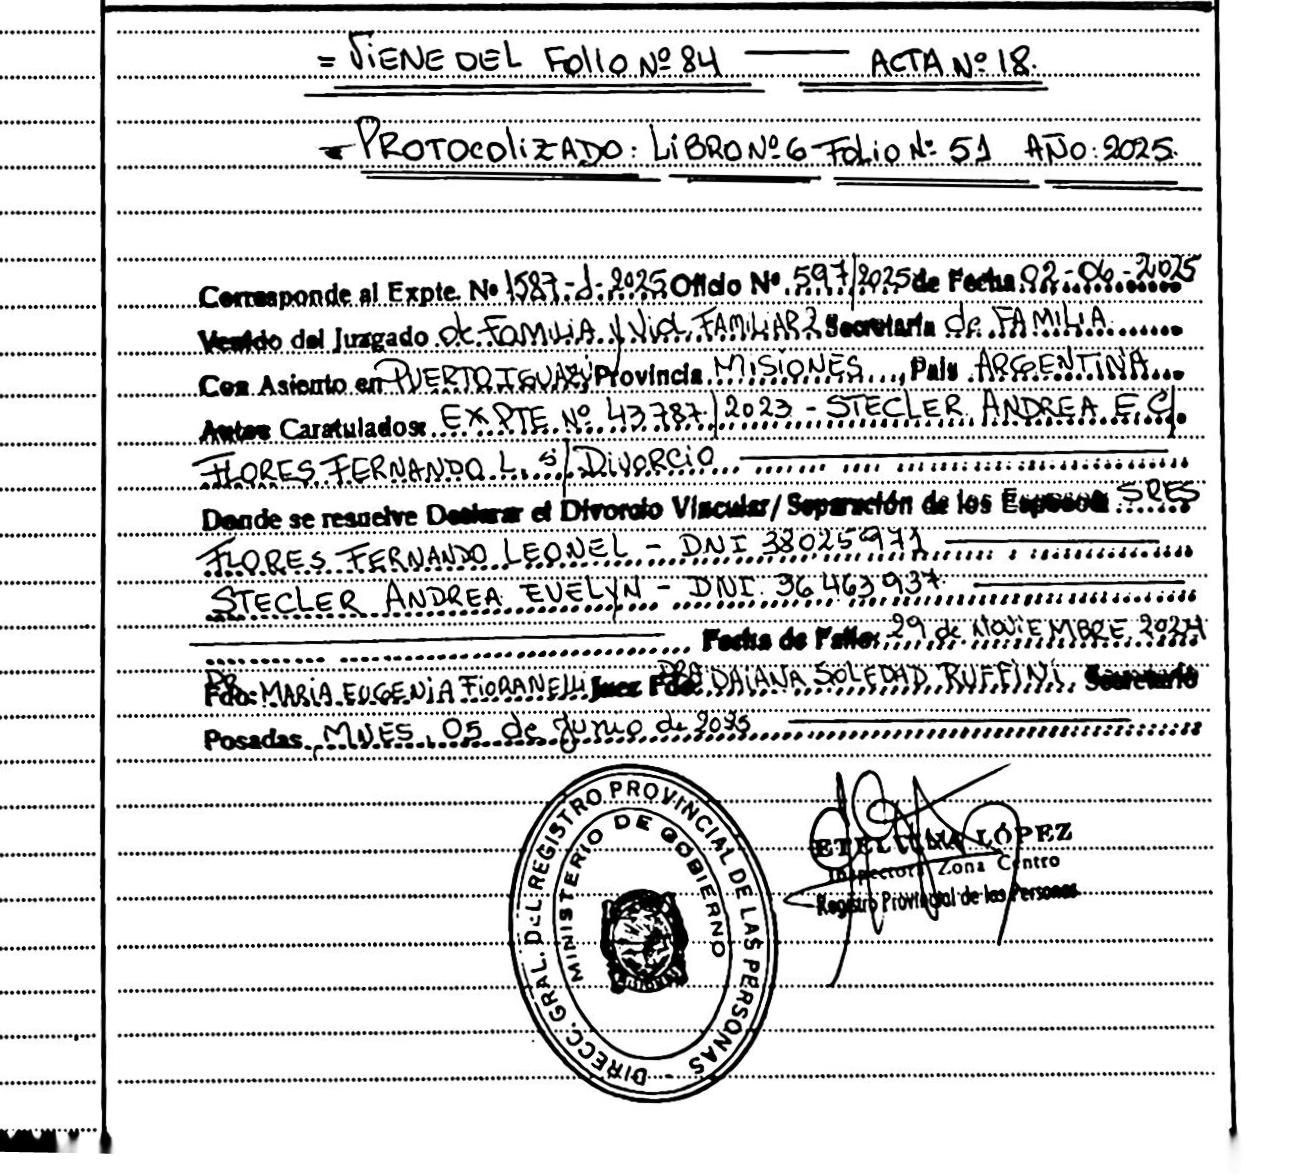 = VIENE DEL FOLIO Nº 84 — ACTA Nº 18.
= PROTOCOLIZADO: LIBRO Nº 6 FOLIO Nº 51 AÑO: 2025.
Corresponde al Expte. Nº 1587-J-2025 Oficio Nº 597/2025 de Fecha 02-06-2025
Venido del Juzgado de FAMILIA y Viol. FAMILIAR 2 Secretaría de FAMILIA
Con Asiento en PUERTO IGUAZÚ Provincia MISIONES, País ARGENTINA
Autos Caratulados: EXPTE Nº 43787/2023 - STECLER ANDREA E. C/
FLORES FERNANDO L. S/ DIVORCIO
Donde se resuelve Declarar el Divorcio Vincular/Separación de los Esposos SRES
FLORES FERNANDO LEONEL - DNI 38025971
STECLER ANDREA EVELYN - DNI. 36463937
Fecha de Fallo: 29 de NOVIEMBRE 2024
Fdo: DRA MARIA EUGENIA FIORANELLI Juez Fdo: DRA DAIANA SOLEDAD RUFFINI, Secretario
Posadas, MNES, 05 de Junio de 2025
DIRECC. GRAL. DEL REGISTRO PROVINCIAL DE LAS PERSONAS -
MINISTERIO DE GOBIERNO
LÓPEZ
Inspectora Zona Centro
Registro Provincial de las Personas